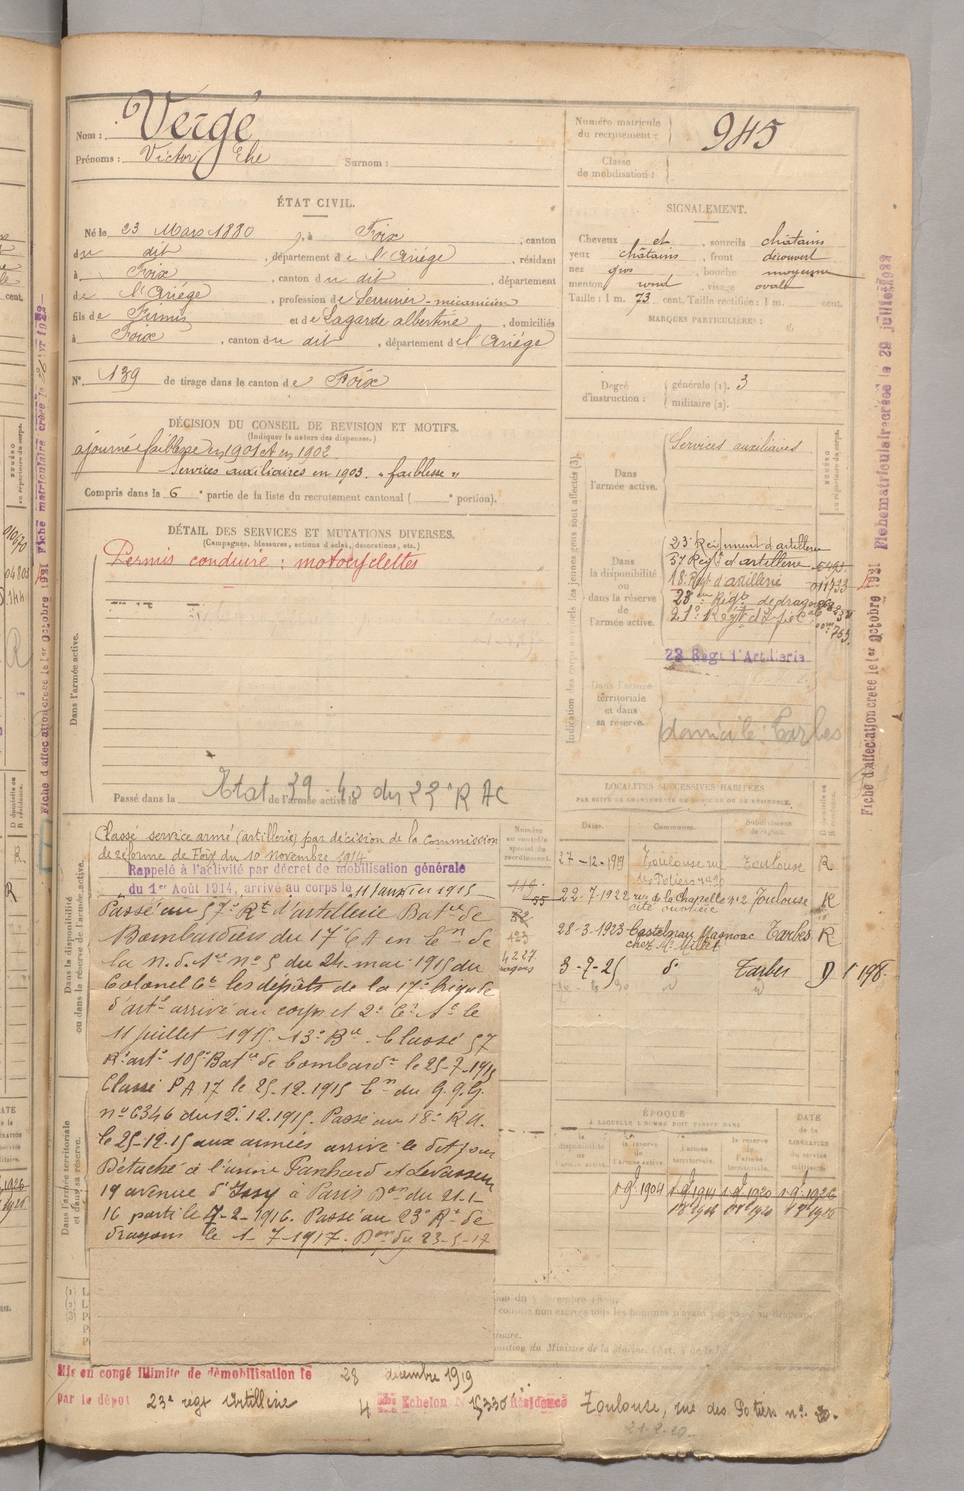 Nom : Vergé
Prénoms : Victor Elie Surnom :
Numéro matricule du recrutement : 945
Classe de mobilisation :
ÉTAT CIVIL.
Né le 23 Mars 1880, à Foix, canton
du dit, département de l'Ariège, résidant
à Foix, canton du dit, département
de l'Ariège, profession de Serrurier-mécanicien
fils de Firmin et de Lagarde albertine, domiciliés
à Foix, canton du dit, département de l'Ariège
N° 139 de tirage dans le canton de Foix
SIGNALEMENT.
Cheveux et , sourcils châtains
yeux châtains , front découvert
nez gros , bouche moyenne
menton rond , visage ovale
Taille : 1 m. 73 cent. Taille rectifiée : 1 m. cent.
MARQUES PARTICULIÈRES :
Degré d'instruction : générale (1). 3
militaire (2).
DÉCISION DU CONSEIL DE REVISION ET MOTIFS.
(Indiquer la nature des dispenses.)
ajourné faiblesse en 1901 et en 1902
Services auxiliaires en 1903. "faiblesse"
Compris dans la 6e partie de la liste du recrutement cantonal ( e portion).
DÉTAIL DES SERVICES ET MUTATIONS DIVERSES.
(Campagnes, blessures, actions d'éclat, décorations, etc.)
Permis conduire : motocyclettes
Dans l'armée active.
Passé dans la de l'armée active le
Etat 39-40 du 23e R AC
Indication des corps auxquels les jeunes gens sont affectés (3).
Dans l'armée active.
Services auxiliaires
Dans la disponibilité ou dans la réserve de l'armée active.
23e Régiment d'artillerie
37 Régt d'artillerie
18e Rgt d'artillerie
28 Régt de dragons
21e Regt
23 Régt d'Artillerie
Dans l'armée territoriale et dans sa réserve.
domicile : Tarbes
Classé service armé (artillerie) par décision de la Commission
de réforme de Foix du 10 novembre 1914
Rappelé à l'activité par décret de mobilisation générale
du 1er Août 1914, arrivé au corps le 11 janvier 1915
Passé au 57e Rt d'artillerie Batie de
Bombardiers du 17e CA en Con de
la n. de Sce no 5 du 24 mai 1915 du
Colonel Ct les dépôts de la 17e brigade
d'artie arrivé au corps et le
11 juillet 1915. 13e Bie. Classé 57
Rt artie 105e Batie de bombardt le 25-7-1915
Classé PA 17 le 25.12.1915 Con du G.Q.G.
no 6346 du 12.1915. Passé au 18e R.A.
le 25-12-15 aux armées arrivé le dit jour
Détaché à l'usine Panhard et Levasseur
19 avenue d'Ivry à Paris Don du 21-1-
16 parti le 7-2-1916. Passé au 23e Rt de
dragons le 1-7-1917. Don du 23-5-17
Numéro au contrôle spécial du recrutement.
LOCALITÉS SUCCESSIVES HABITÉES
PAR SUITE DE CHANGEMENTS DE DOMICILE OU DE RÉSIDENCE.
Dates. Communes. Subdivisions de région. D domicile ou R résidence.
27-12-1919 Toulouse rue des Potiers no 30 Toulouse R
22-7-1922 rue de la Chapelle no 2 cité ouvrière Toulouse R
28-3-1923 Castelnau Magnoac chez Mr Millet Tarbes R
3-7-25 do Tarbes D
ÉPOQUE
À LAQUELLE L'HOMME DOIT PASSER DANS
DATE de la LIBÉRATION du service militaire.
la réserve de l'armée active. l'armée territoriale. la réserve de l'armée territoriale.
1 9 1904 1 9 1914 1 9 1920 1 9 1926
Dans la disponibilité ou dans la réserve de l'armée active.
Dans l'armée territoriale et dans sa réserve.
Mis en congé illimité de démobilisation le 28 décembre 1919
par le dépôt 23e régt Artillerie 4 Echelon N 15336 Résidence Toulouse, rue des Potiers no 30.
Fiche d'affectation créée le 1er octobre 1921 Fiche matriculaire créée le 29 juillet 1922
Fiche d'affectation créée le 1er octobre 1921 Fiche matriculaire créée le